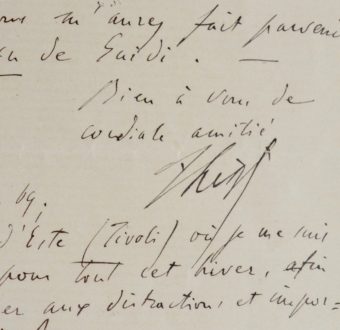 ous m'aurez fait parveni
de
Bien à vous de
cordiale amitié
FLiszt
69.
d'Este (Tivoli) où je me suis
pour tout cet hiver, afin
er aux distractions, et impor-